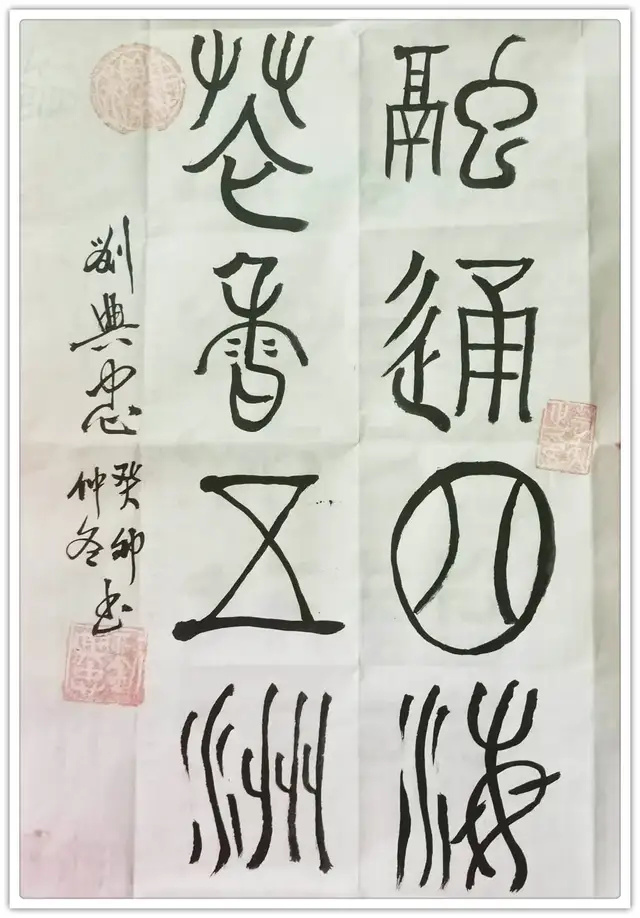 融通四海
花香五洲
劉典忠
癸卯
仲冬书